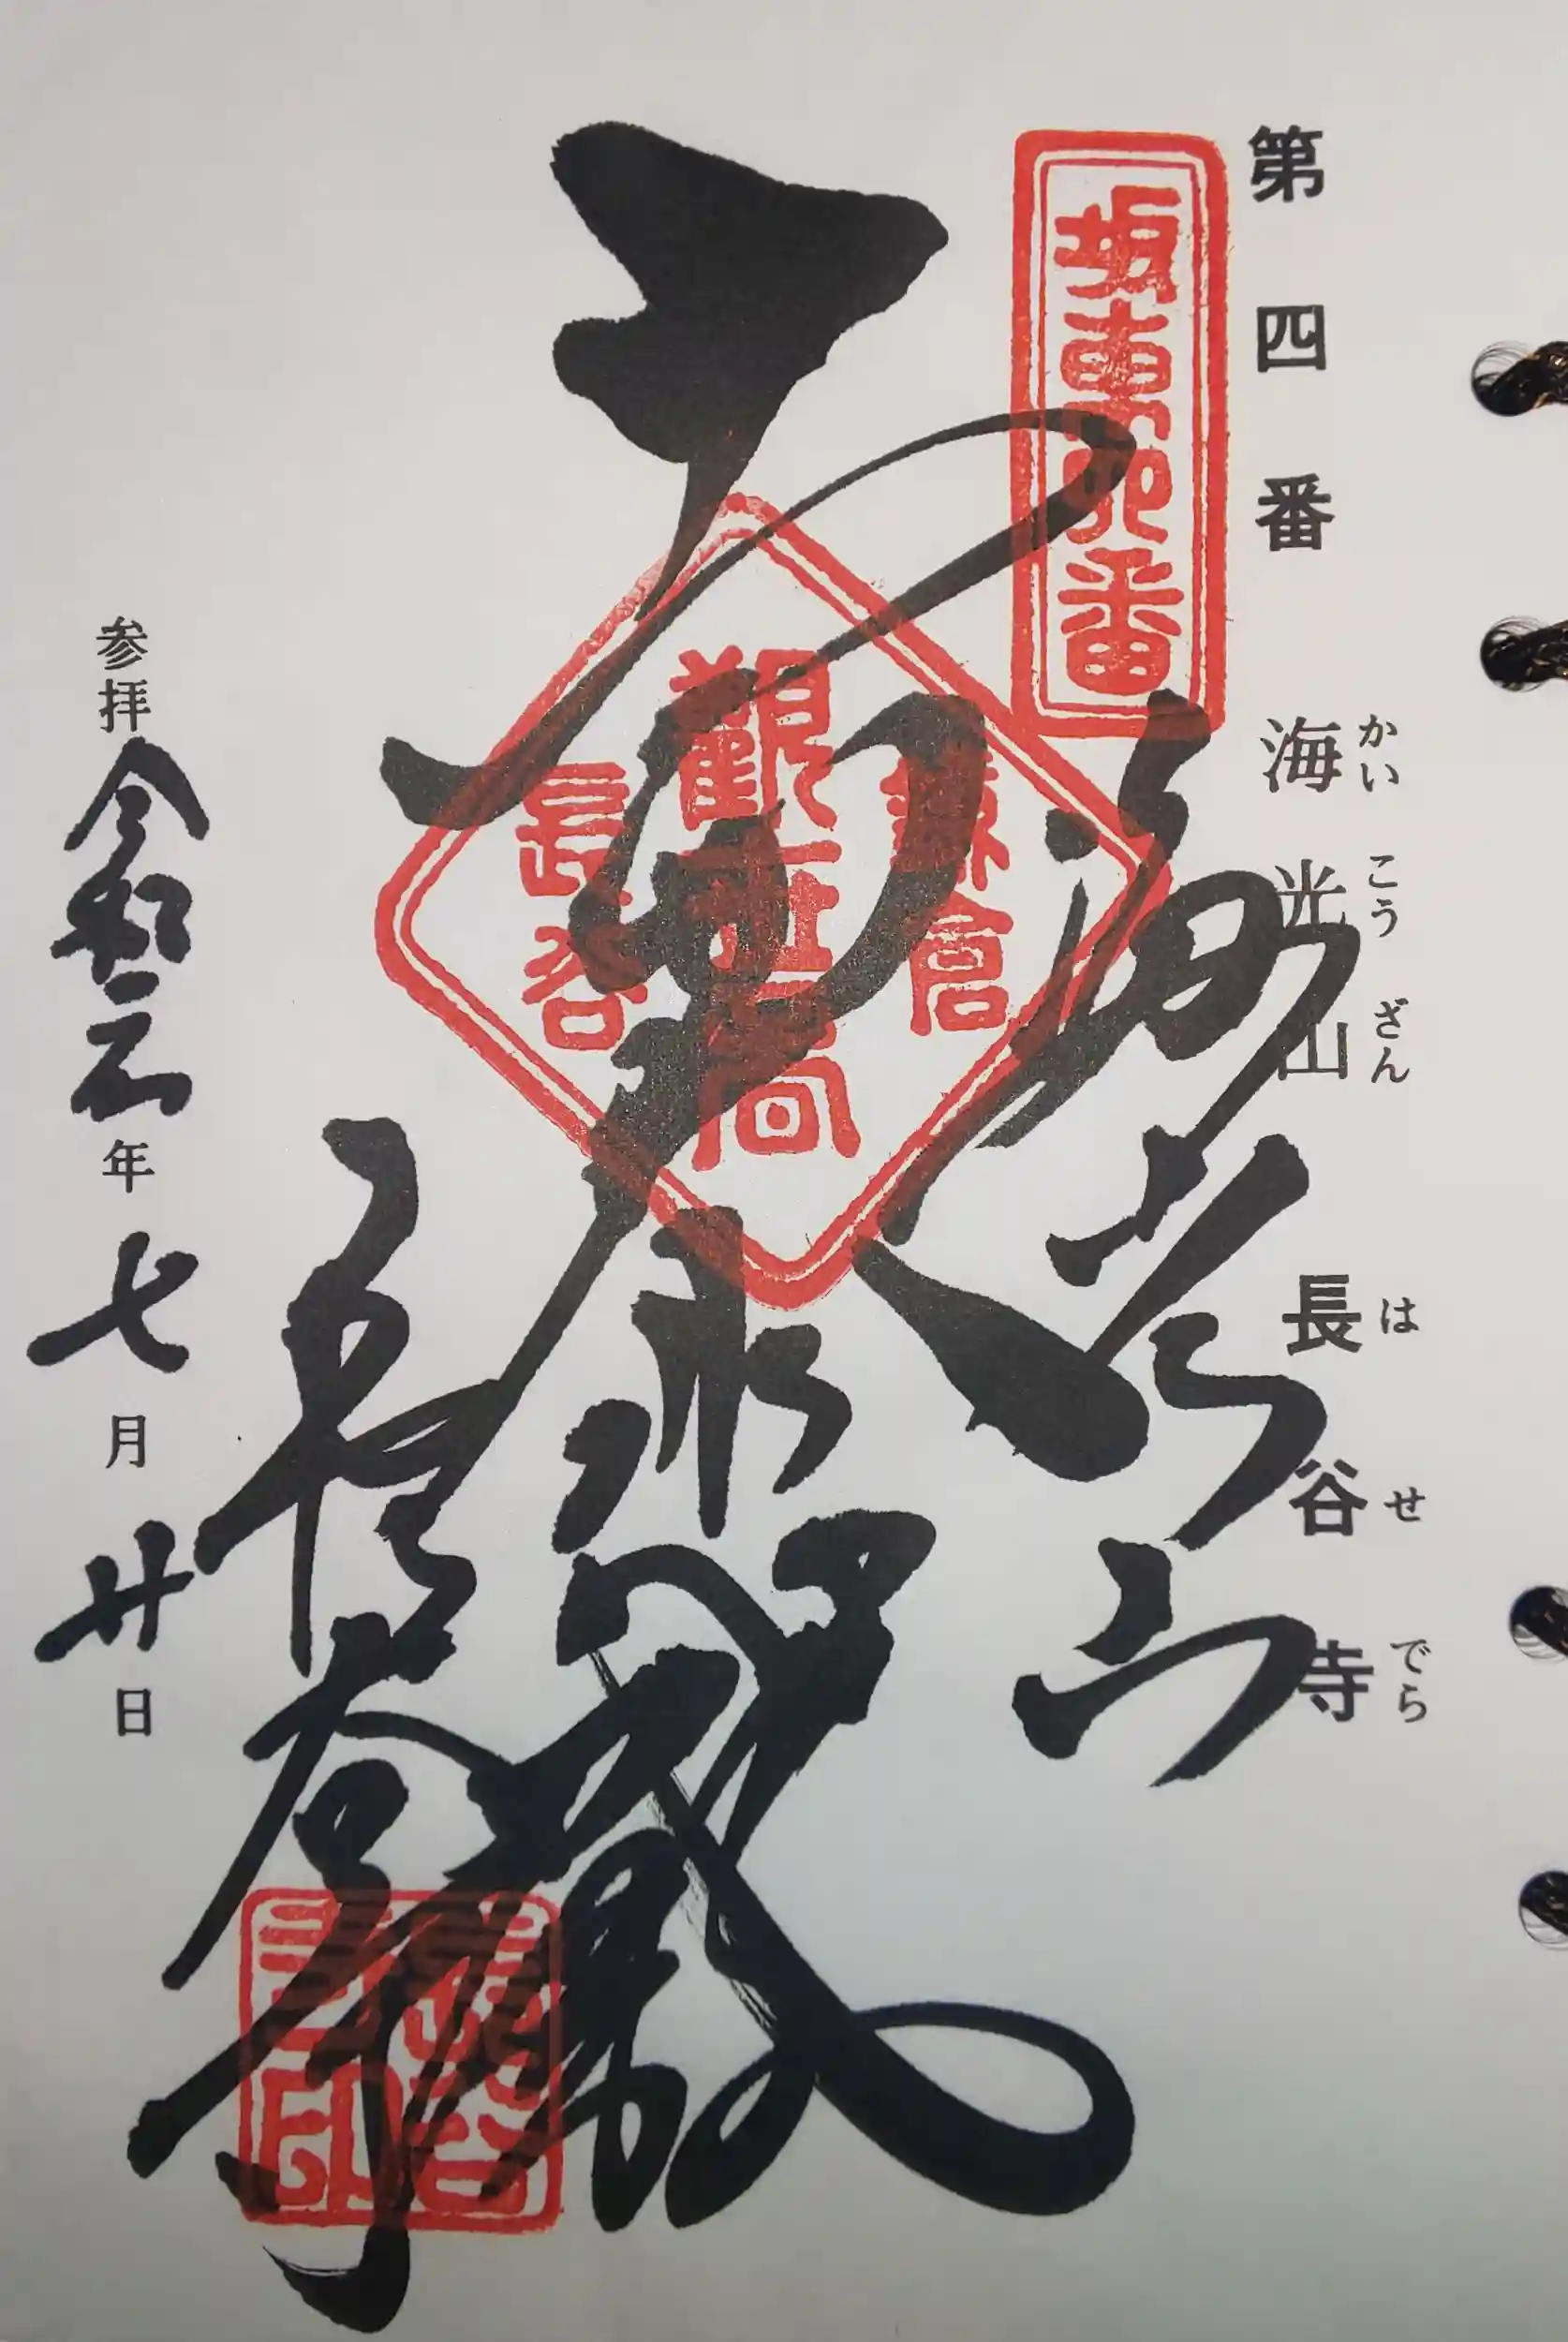 第四番 海光山 長谷寺
かいこうざん はせでら
坂東四番
海光山
十一面大悲殿
鎌倉
観世音
長谷
長谷寺
参拝 令和元年 七月 廿日